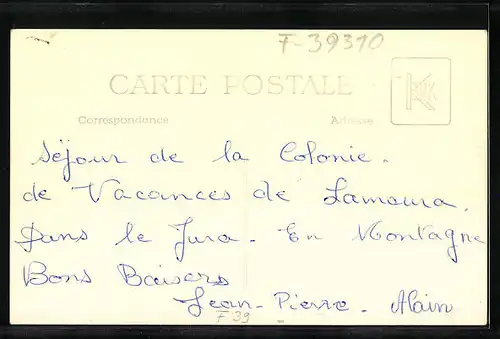 F-39310
CARTE POSTALE
Correspondance Adresse
Séjour de la Colonie.
de Vacances de Lamoura.
Dans le Jura. En Montagne
Bons Baisers
Jean-Pierre. Alain
F 39